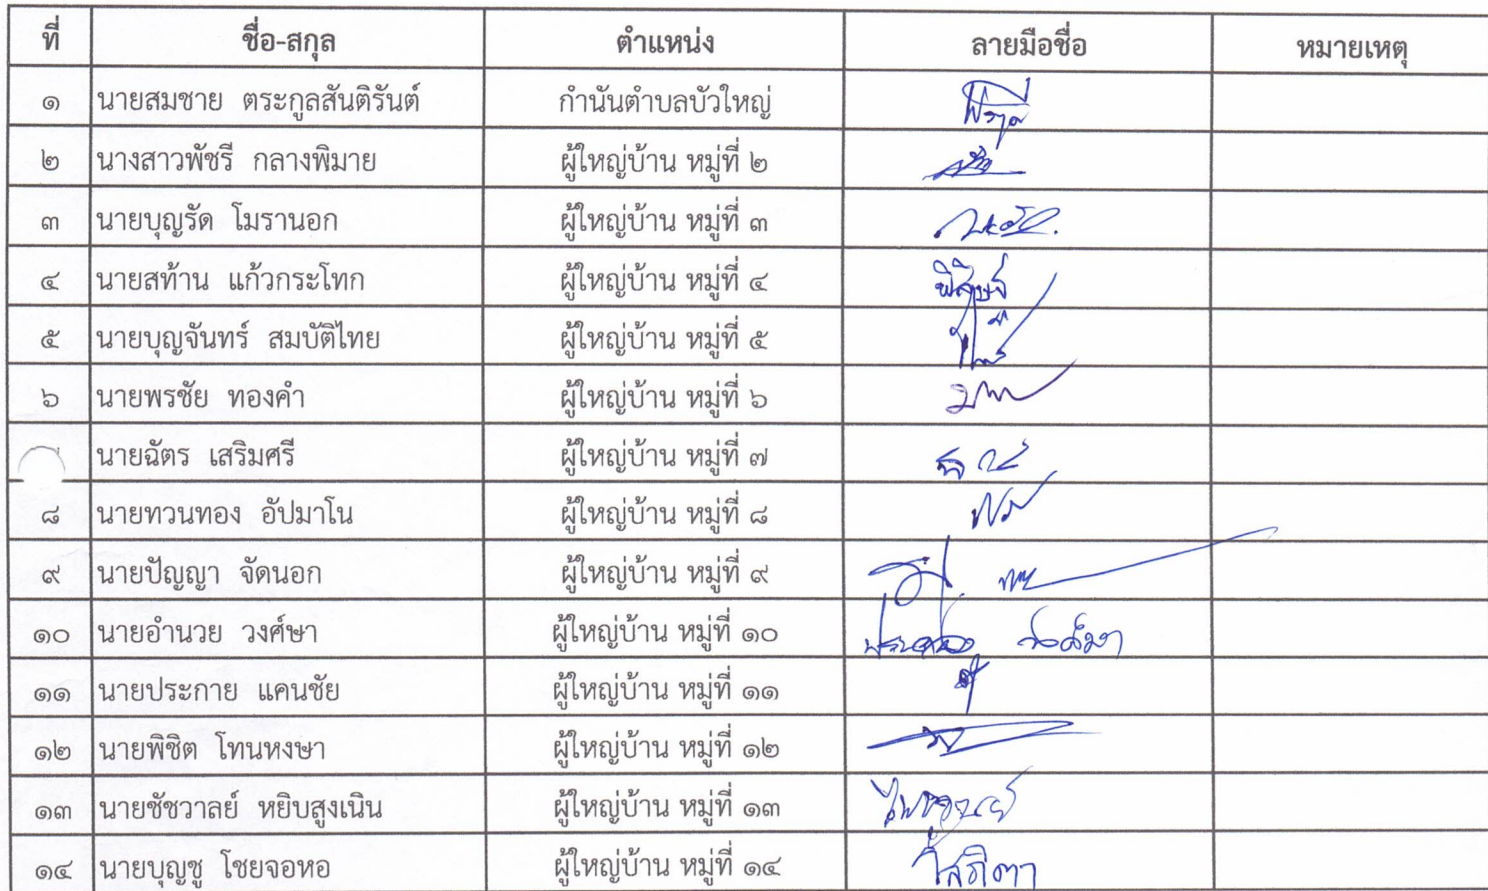 ที่ ชื่อ-สกุล ตำแหน่ง ลายมือชื่อ หมายเหตุ
๑ นายสมชาย ตระกูลสันติรันต์ กำนันตำบลบัวใหญ่
๒ นางสาวพัชรี กลางพิมาย ผู้ใหญ่บ้าน หมู่ที่ ๒
๓ นายบุญรัด โมรานอก ผู้ใหญ่บ้าน หมู่ที่ ๓
๔ นายสท้าน แก้วกระโทก ผู้ใหญ่บ้าน หมู่ที่ ๔
๕ นายบุญจันทร์ สมบัติไทย ผู้ใหญ่บ้าน หมู่ที่ ๕
๖ นายพรชัย ทองคำ ผู้ใหญ่บ้าน หมู่ที่ ๖
นายฉัตร เสริมศรี ผู้ใหญ่บ้าน หมู่ที่ ๗
๘ นายทวนทอง อัปมาโน ผู้ใหญ่บ้าน หมู่ที่ ๘
๙ นายปัญญา จัดนอก ผู้ใหญ่บ้าน หมู่ที่ ๙
๑๐ นายอำนวย วงศ์ษา ผู้ใหญ่บ้าน หมู่ที่ ๑๐
๑๑ นายประกาย แคนชัย ผู้ใหญ่บ้าน หมู่ที่ ๑๑
๑๒ นายพิชิต โทนหงษา ผู้ใหญ่บ้าน หมู่ที่ ๑๒
๑๓ นายชัชวาลย์ หยิบสูงเนิน ผู้ใหญ่บ้าน หมู่ที่ ๑๓
๑๔ นายบุญชู โชยจอหอ ผู้ใหญ่บ้าน หมู่ที่ ๑๔